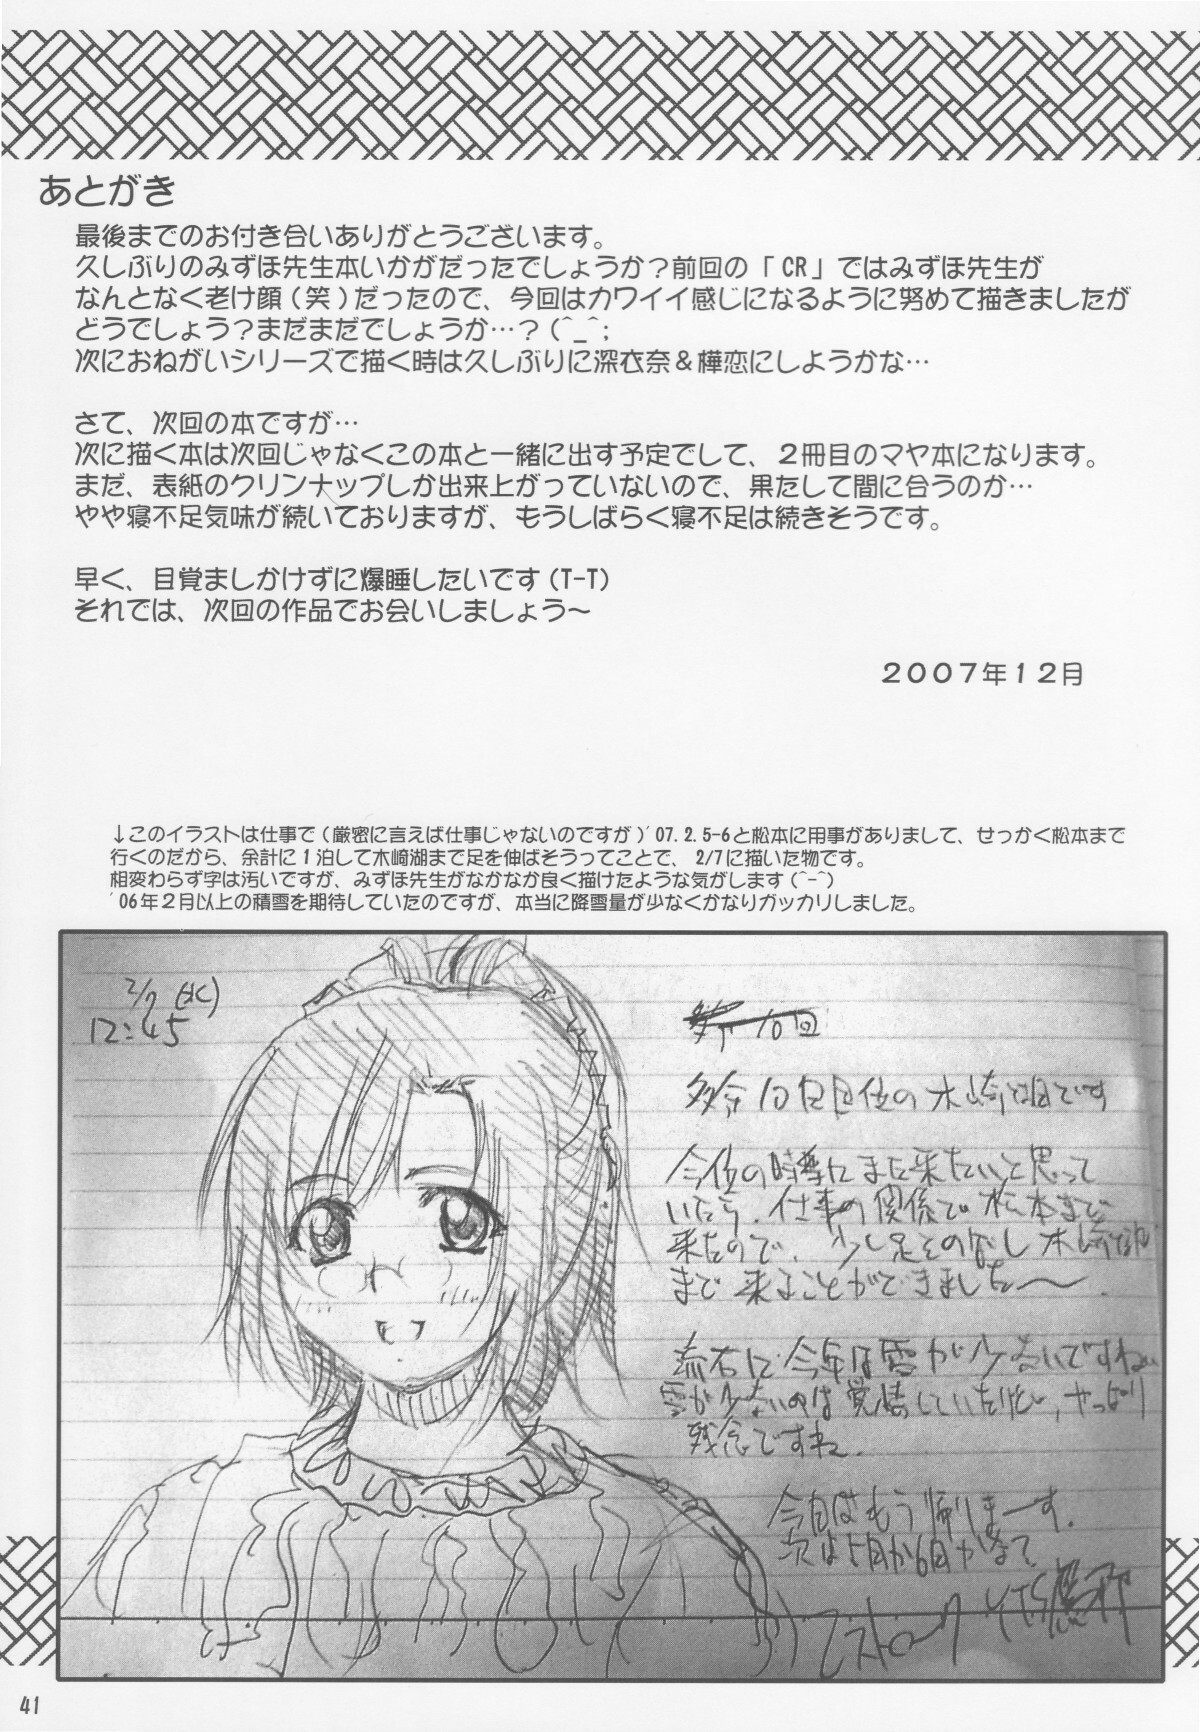 あとがき
最後までのお付き合いありがとうございます。
久しぶりのみずほ先生本いかがだったでしょうか？前回の「CR」ではみずほ先生が
なんとなく老け顔(笑)だったので、今回はカワイイ感じになるように努めて描きましたが
どうでしょう？まだまだでしょうか…？(^_^;
次におねがいシリーズで描く時は久しぶりに深衣奈＆樺恋にしようかな…
さて、次回の本ですが…
次に描く本は次回じゃなくこの本と一緒に出す予定でして、２冊目のマヤ本になります。
まだ、表紙のクリンナップしか出来上がっていないので、果たして間に合うのか…
やや寝不足気味が続いておりますが、もうしばらく寝不足は続きそうです。
早く、目覚ましかけずに爆睡したいです(T-T)
それでは、次回の作品でお会いしましょう～
２００７年１２月
↓このイラストは仕事で(厳密に言えば仕事じゃないのですが)'07.2.5-6と松本に用事がありまして、せっかく松本まで
行くのだから、余計に１泊して木崎湖まで足を伸ばそうってことで、2/7に描いた物です。
相変わらず字は汚いですが、みずほ先生がなかなか良く描けたような気がします(^-^)
'06年２月以上の積雪を期待していたのですが、本当に降雪量が少なくかなりガッカリしました。
2/7(水)
12:45
10回
多分10回目位の木崎湖です
今位の時季にまた来たいと思って
いたら、仕事の関係で松本まで
来たので、少し足をのばし木崎湖
まで来ることができました～
流石に今年は雪が少ないですねぃ
雪が少ないのは覚悟していたけど、やっぱり
残念ですね。
今日はもう帰りまーす。
次は5月か6月かなぁて
41